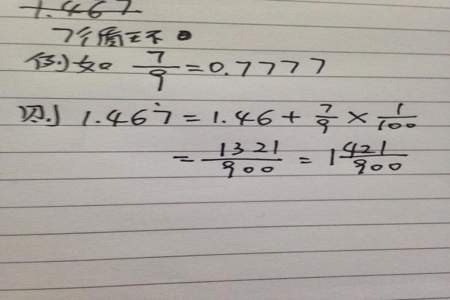 1.467
7循环
例如 7/9 = 0.7777
则 1.467̇ = 1.46 + 7/9 × 1/100
= 1321/900 = 1 421/900